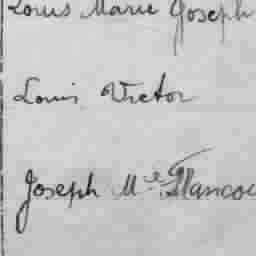 Louis Marie Joseph
Louis Victor
Joseph Mie